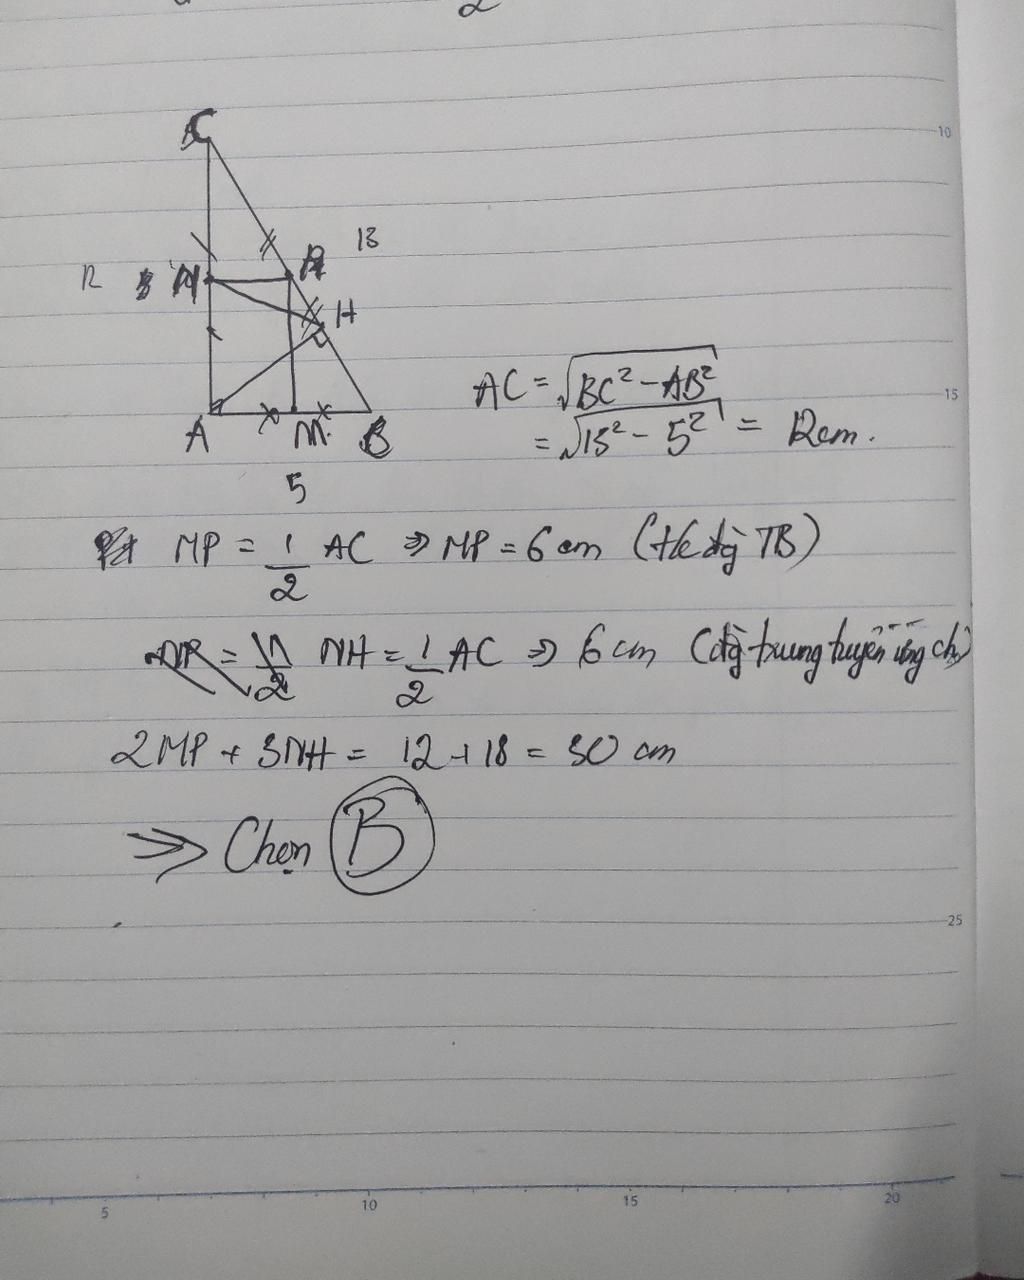 2
C
13
12 N P
H
A M B
5
AC = √BC² - AB²
= √13² - 5² = 12cm.
MP = 1/2 AC ⇒ MP = 6 cm (t/c đg TB)
NH = 1/2 AC ⇒ 6 cm (đg trung tuyến ứng ch)
2MP + 3NH = 12 + 18 = 30 cm
⇒ Chọn B
10
15
25
5 10 15 20